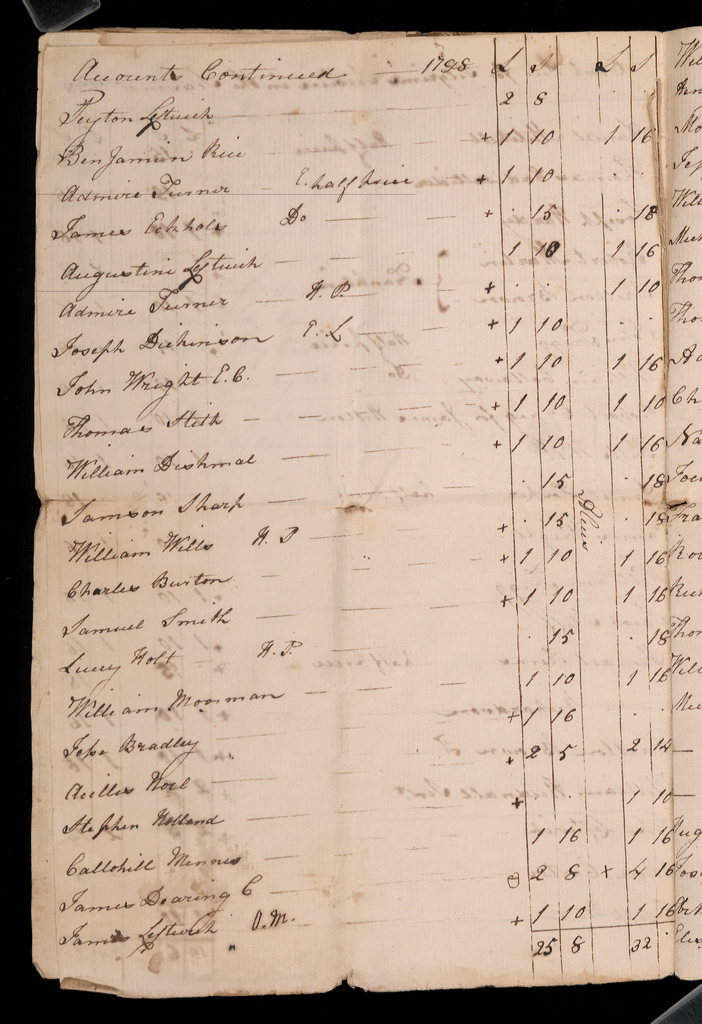 Accounts Continued — 1798 £ S £ S
Peyton Leftwich — 2 8
Benjamin Rice — + 1 10 1 16
Admire Turner E. half price + 1 10 . .
James Echhols Do — + . 15 . 18
Augustine Leftwich — 1 10 1 16
Admire Turner H. P. — + . . 1 10
Joseph Dickinson E. L — + 1 10 . .
John Wright E. C. — + 1 10 1 16
Thomas Stith — + 1 10 1 10
William Dishmal — + 1 10 1 16
Samson Sharp — . 15 . 18
William Wills H. P — + . 15 . 18
Charles Burton — + 1 10 1 16
Samuel Smith — + 1 10 1 16
Lucey Holt — H. P. — . 15 . 18
William Moorman — 1 10 1 16
Jesse Bradley — + 1 16 . .
Acilles Noel — + 2 5 2 14
Stephen Holland — + . . 1 10
Callohill Minnis — 1 16 1 16
James Dearing C — 2 8 x 4 16
James Leftwich O. M. — + 1 10 1 16
25 8 32